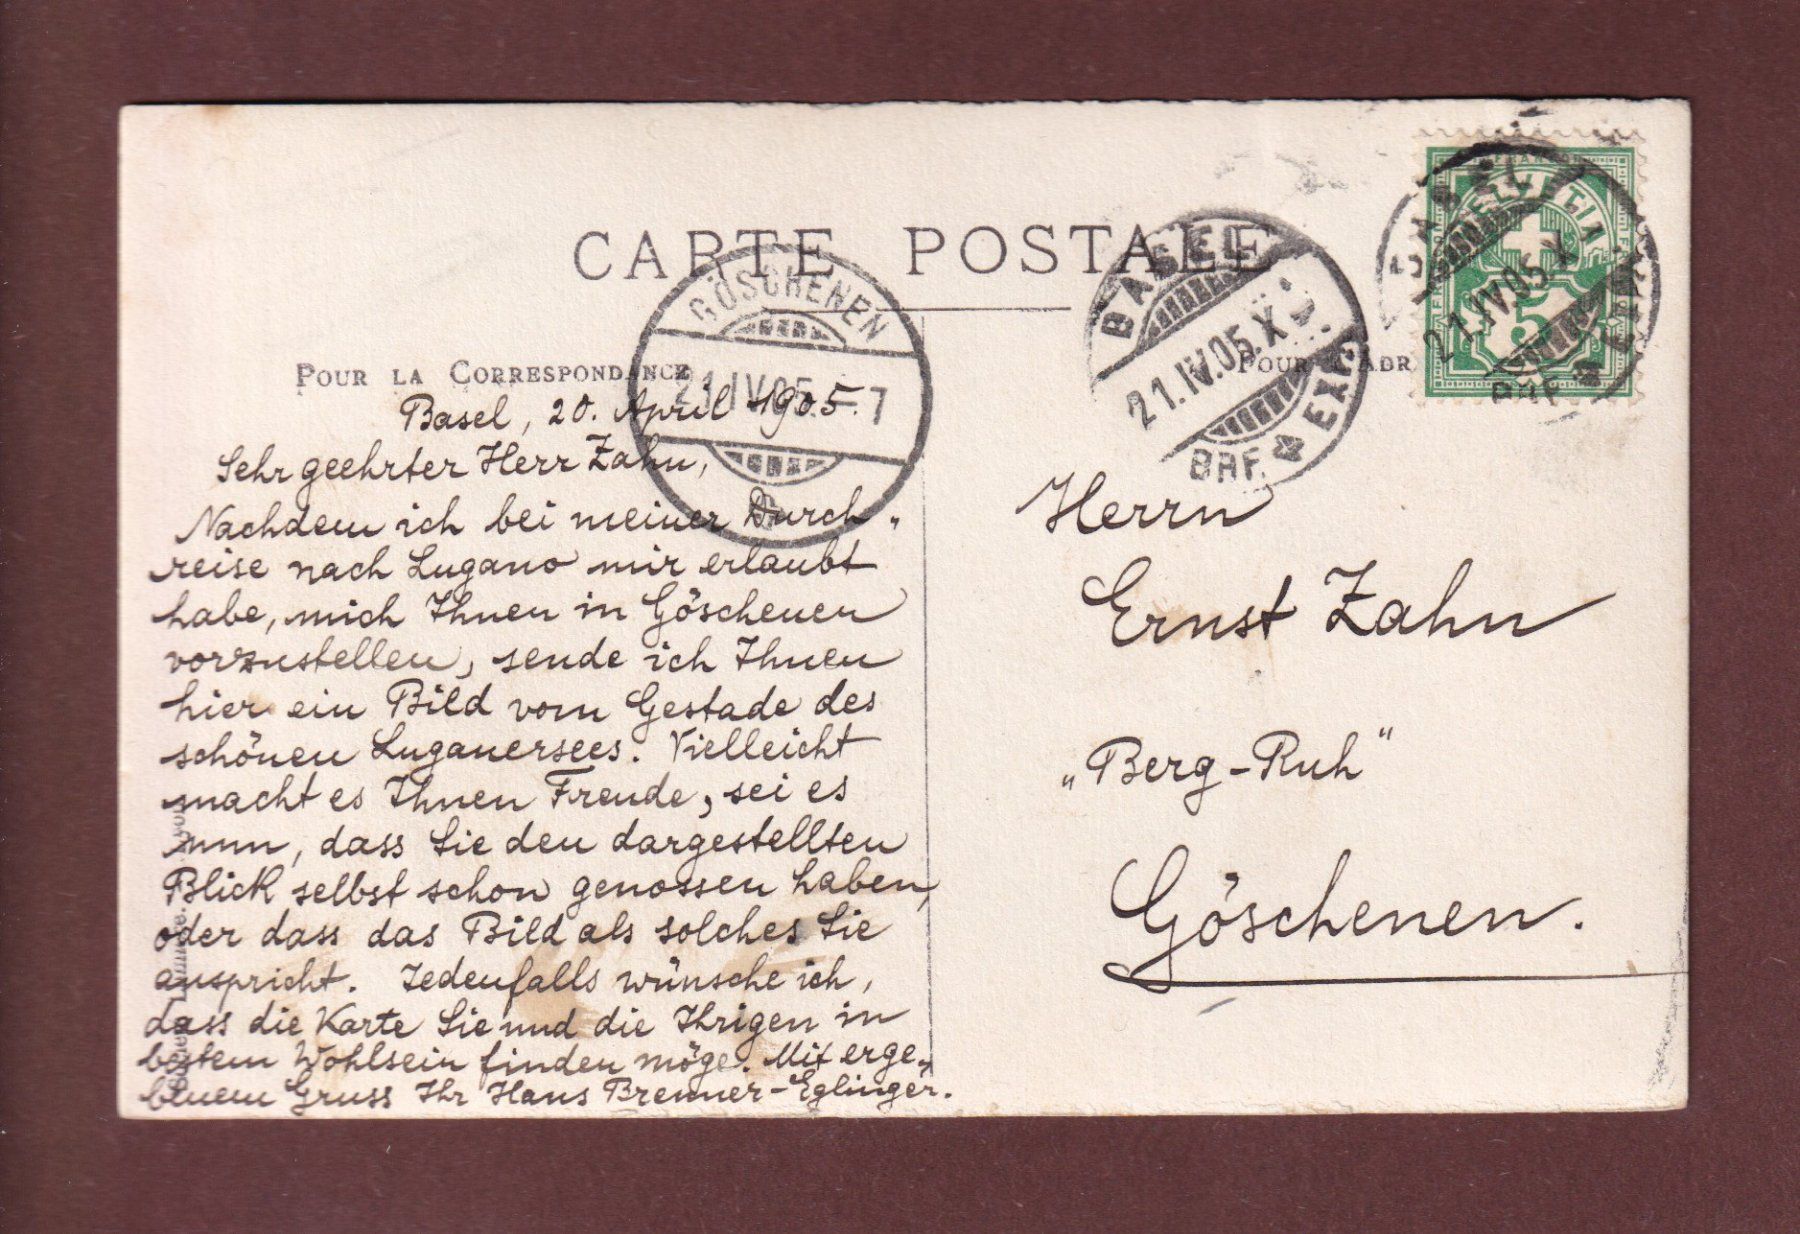 CARTE POSTALE
POUR LA CORRESPONDANCE
POUR L'ADR
GÖSCHENEN
21.IV.05.–7
BASEL
21.IV.05.X
BRF. EXP.
FRANCO
HELVETIA
5
BASEL
21.IV.05.X
BRF. EXP.
Basel, 20. April 1905.
Sehr geehrter Herr Zahn,
Nachdem ich bei meiner Durch„
reise nach Lugano mir erlaubt
habe, mich Ihnen in Göschenen
vorzustellen, sende ich Ihnen
hier ein Bild vom Gestade des
schönen Luganersees. Vielleicht
macht es Ihnen Freude, sei es
nun, dass Sie den dargestellten
Blick selbst schon genossen haben,
oder dass das Bild als solches Sie
anspricht. Jedenfalls wünsche ich,
dass die Karte Sie und die Ihrigen in
bestem Wohlsein finden möge. Mit erge„
benem Gruss Ihr Hans Brenner-Eglinger.
Herrn
Ernst Zahn
„Berg-Ruh"
Göschenen.